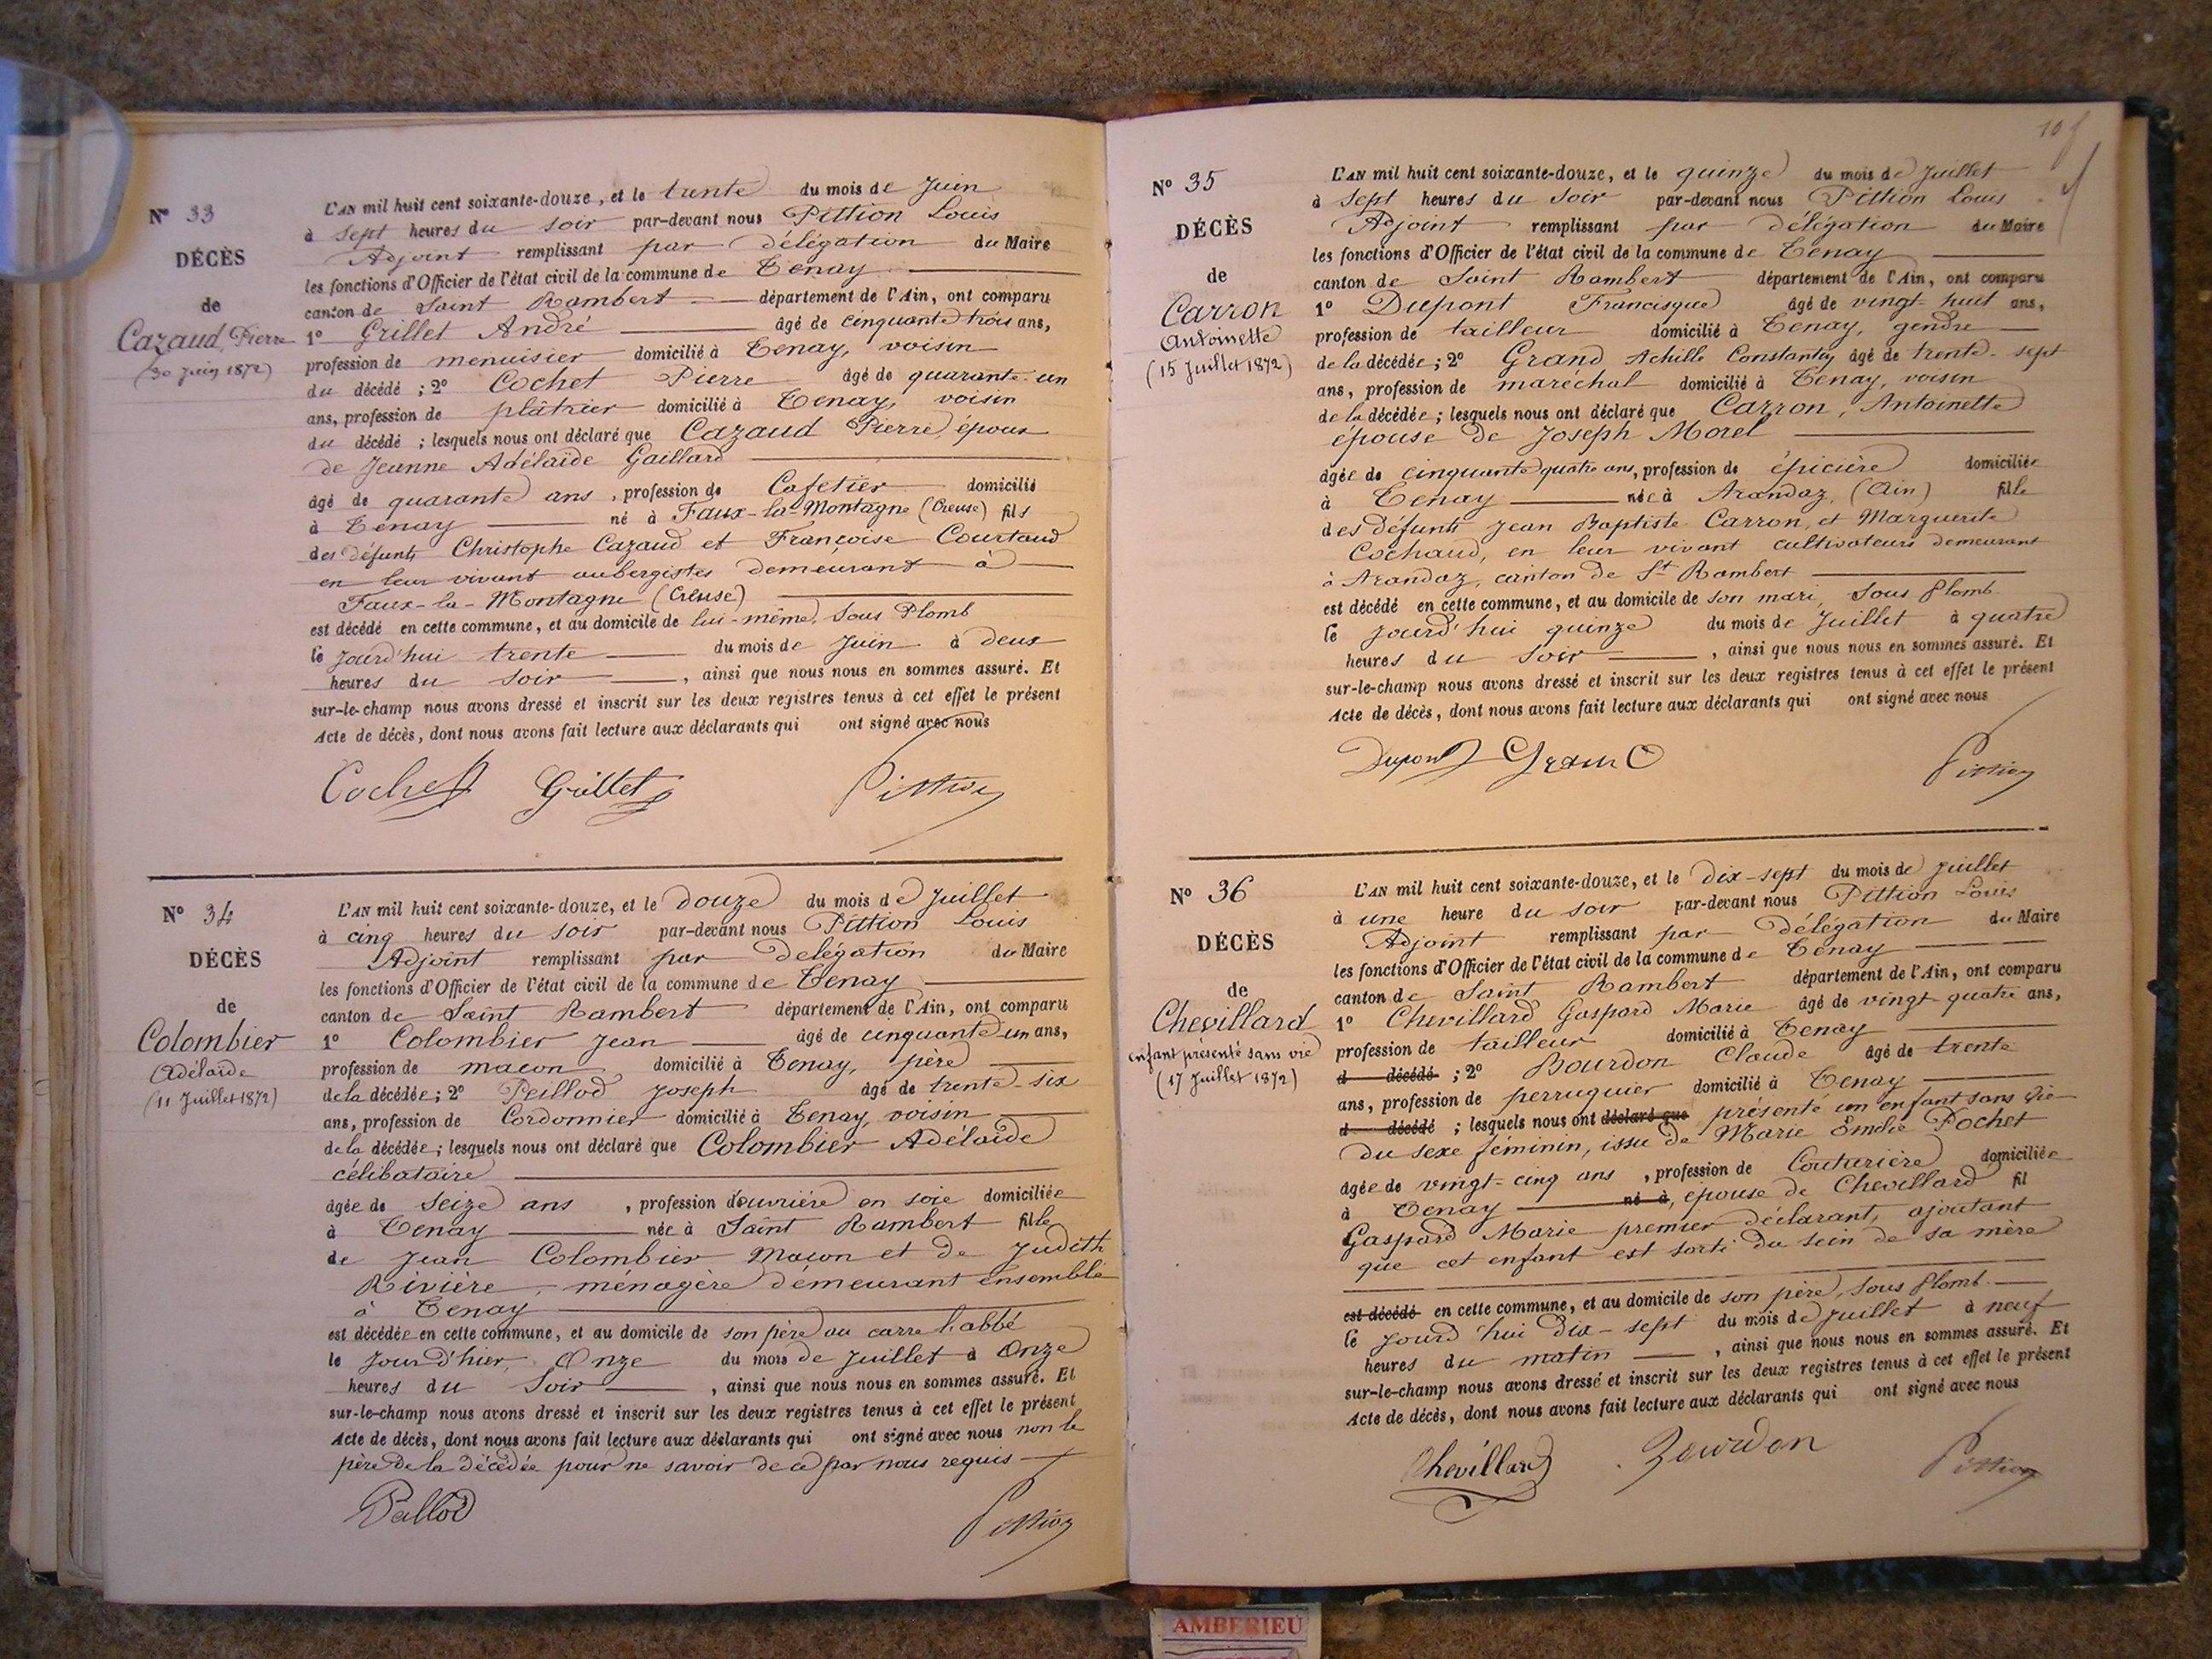 Nº 33
DÉCÈS
de
Cazaud, Pierre
(30 Juin 1872)
L'AN mil huit cent soixante-douze, et le trente du mois de Juin
à sept heures du soir par-devant nous Pittion Louis
Adjoint remplissant par délégation du Maire
les fonctions d'Officier de l'état civil de la commune de Tenay
canton de Saint Rambert département de l'Ain, ont comparu
1º Grillet André âgé de cinquante trois ans,
profession de menuisier domicilié à Tenay, voisin
du décédé ; 2º Cochet Pierre âgé de quarante-un
ans, profession de plâtrier domicilié à Tenay, voisin
du décédé ; lesquels nous ont déclaré que Cazaud Pierre, époux
de Jeanne Adélaïde Gaillard
âgé de quarante ans, profession de Cafetier domicilié
à Tenay né à Faux-la-Montagne (Creuse) fils
des défunts Christophe Cazaud et Françoise Courtaud
en leur vivant aubergistes demeurant à
Faux-la-Montagne (Creuse)
est décédé en cette commune, et au domicile de lui-même, sous Plomb
le jourd'hui trente du mois de Juin à deux
heures du soir, ainsi que nous nous en sommes assuré. Et
sur-le-champ nous avons dressé et inscrit sur les deux registres tenus à cet effet le présent
Acte de décès, dont nous avons fait lecture aux déclarants qui ont signé avec nous
Cochet Grillet Pittion
Nº 34
DÉCÈS
de
Colombier
Adélaïde
(11 Juillet 1872)
L'AN mil huit cent soixante-douze, et le douze du mois de Juillet
à cinq heures du soir par-devant nous Pittion Louis
Adjoint remplissant par délégation du Maire
les fonctions d'Officier de l'état civil de la commune de Tenay
canton de Saint Rambert département de l'Ain, ont comparu
1º Colombier Jean âgé de cinquante un ans,
profession de maçon domicilié à Tenay, père
de la décédée ; 2º Peillod Joseph âgé de trente-six
ans, profession de Cordonnier domicilié à Tenay, voisin
de la décédée ; lesquels nous ont déclaré que Colombier Adélaïde
célibataire
âgée de seize ans, profession d'ouvrière en soie domiciliée
à Tenay née à Saint Rambert fille
de Jean Colombier Maçon et de Judith
Rivière, ménagère demeurant ensemble
à Tenay
est décédée en cette commune, et au domicile de son père au carre l'abbé
le jour d'hier, Onze du mois de Juillet à Onze
heures du soir, ainsi que nous nous en sommes assuré. Et
sur-le-champ nous avons dressé et inscrit sur les deux registres tenus à cet effet le présent
Acte de décès, dont nous avons fait lecture aux déclarants qui ont signé avec nous non le
père de la décédée pour ne savoir de ce par nous requis
Peillod Pittion
10
Nº 35
DÉCÈS
de
Carron
Antoinette
(15 Juillet 1872)
L'AN mil huit cent soixante-douze, et le quinze du mois de Juillet
à sept heures du soir par-devant nous Pittion Louis
Adjoint remplissant par délégation du Maire
les fonctions d'Officier de l'état civil de la commune de Tenay
canton de Saint Rambert département de l'Ain, ont comparu
1º Dupont Francisque âgé de vingt-huit ans,
profession de tailleur domicilié à Tenay, gendre
de la décédée ; 2º Grand Achille Constantin âgé de trente-sept
ans, profession de maréchal domicilié à Tenay, voisin
de la décédée ; lesquels nous ont déclaré que Carron, Antoinette
épouse de Joseph Morel
âgée de cinquante quatre ans, profession de épicière domiciliée
à Tenay née à Arandaz, (Ain) fille
des défunts Jean Baptiste Carron, et Marguerite
Cochaud, en leur vivant cultivateurs demeurant
à Arandaz, canton de St Rambert
est décédé en cette commune, et au domicile de son mari, sous Plomb
le jourd'hui quinze du mois de Juillet à quatre
heures du soir, ainsi que nous nous en sommes assuré. Et
sur-le-champ nous avons dressé et inscrit sur les deux registres tenus à cet effet le présent
Acte de décès, dont nous avons fait lecture aux déclarants qui ont signé avec nous
Dupont Grand Pittion
Nº 36
DÉCÈS
de
Chevillard
enfant présenté sans vie
(17 Juillet 1872)
L'AN mil huit cent soixante-douze, et le dix-sept du mois de Juillet
à une heure du soir par-devant nous Pittion Louis
Adjoint remplissant par délégation du Maire
les fonctions d'Officier de l'état civil de la commune de Tenay
canton de Saint Rambert département de l'Ain, ont comparu
1º Chevillard Gaspard Marie âgé de vingt quatre ans,
profession de tailleur domicilié à Tenay
d décédé ; 2º Bourdon Claude âgé de trente
ans, profession de perruquier domicilié à Tenay
d décédé ; lesquels nous ont déclaré que présenté un enfant sans vie
du sexe féminin, issu de Marie Emélie Pochet
âgée de vingt-cinq ans, profession de Couturière domiciliée
à Tenay né à, épouse de Chevillard fil
Gaspard Marie premier déclarant, ajoutant
que cet enfant est sorti du sein de sa mère
est décédé en cette commune, et au domicile de son père, sous Plomb
le jourd'hui dix-sept du mois de Juillet à neuf
heures du matin, ainsi que nous nous en sommes assuré. Et
sur-le-champ nous avons dressé et inscrit sur les deux registres tenus à cet effet le présent
Acte de décès, dont nous avons fait lecture aux déclarants qui ont signé avec nous
Chevillard Bourdon Pittion
AMBERIEU